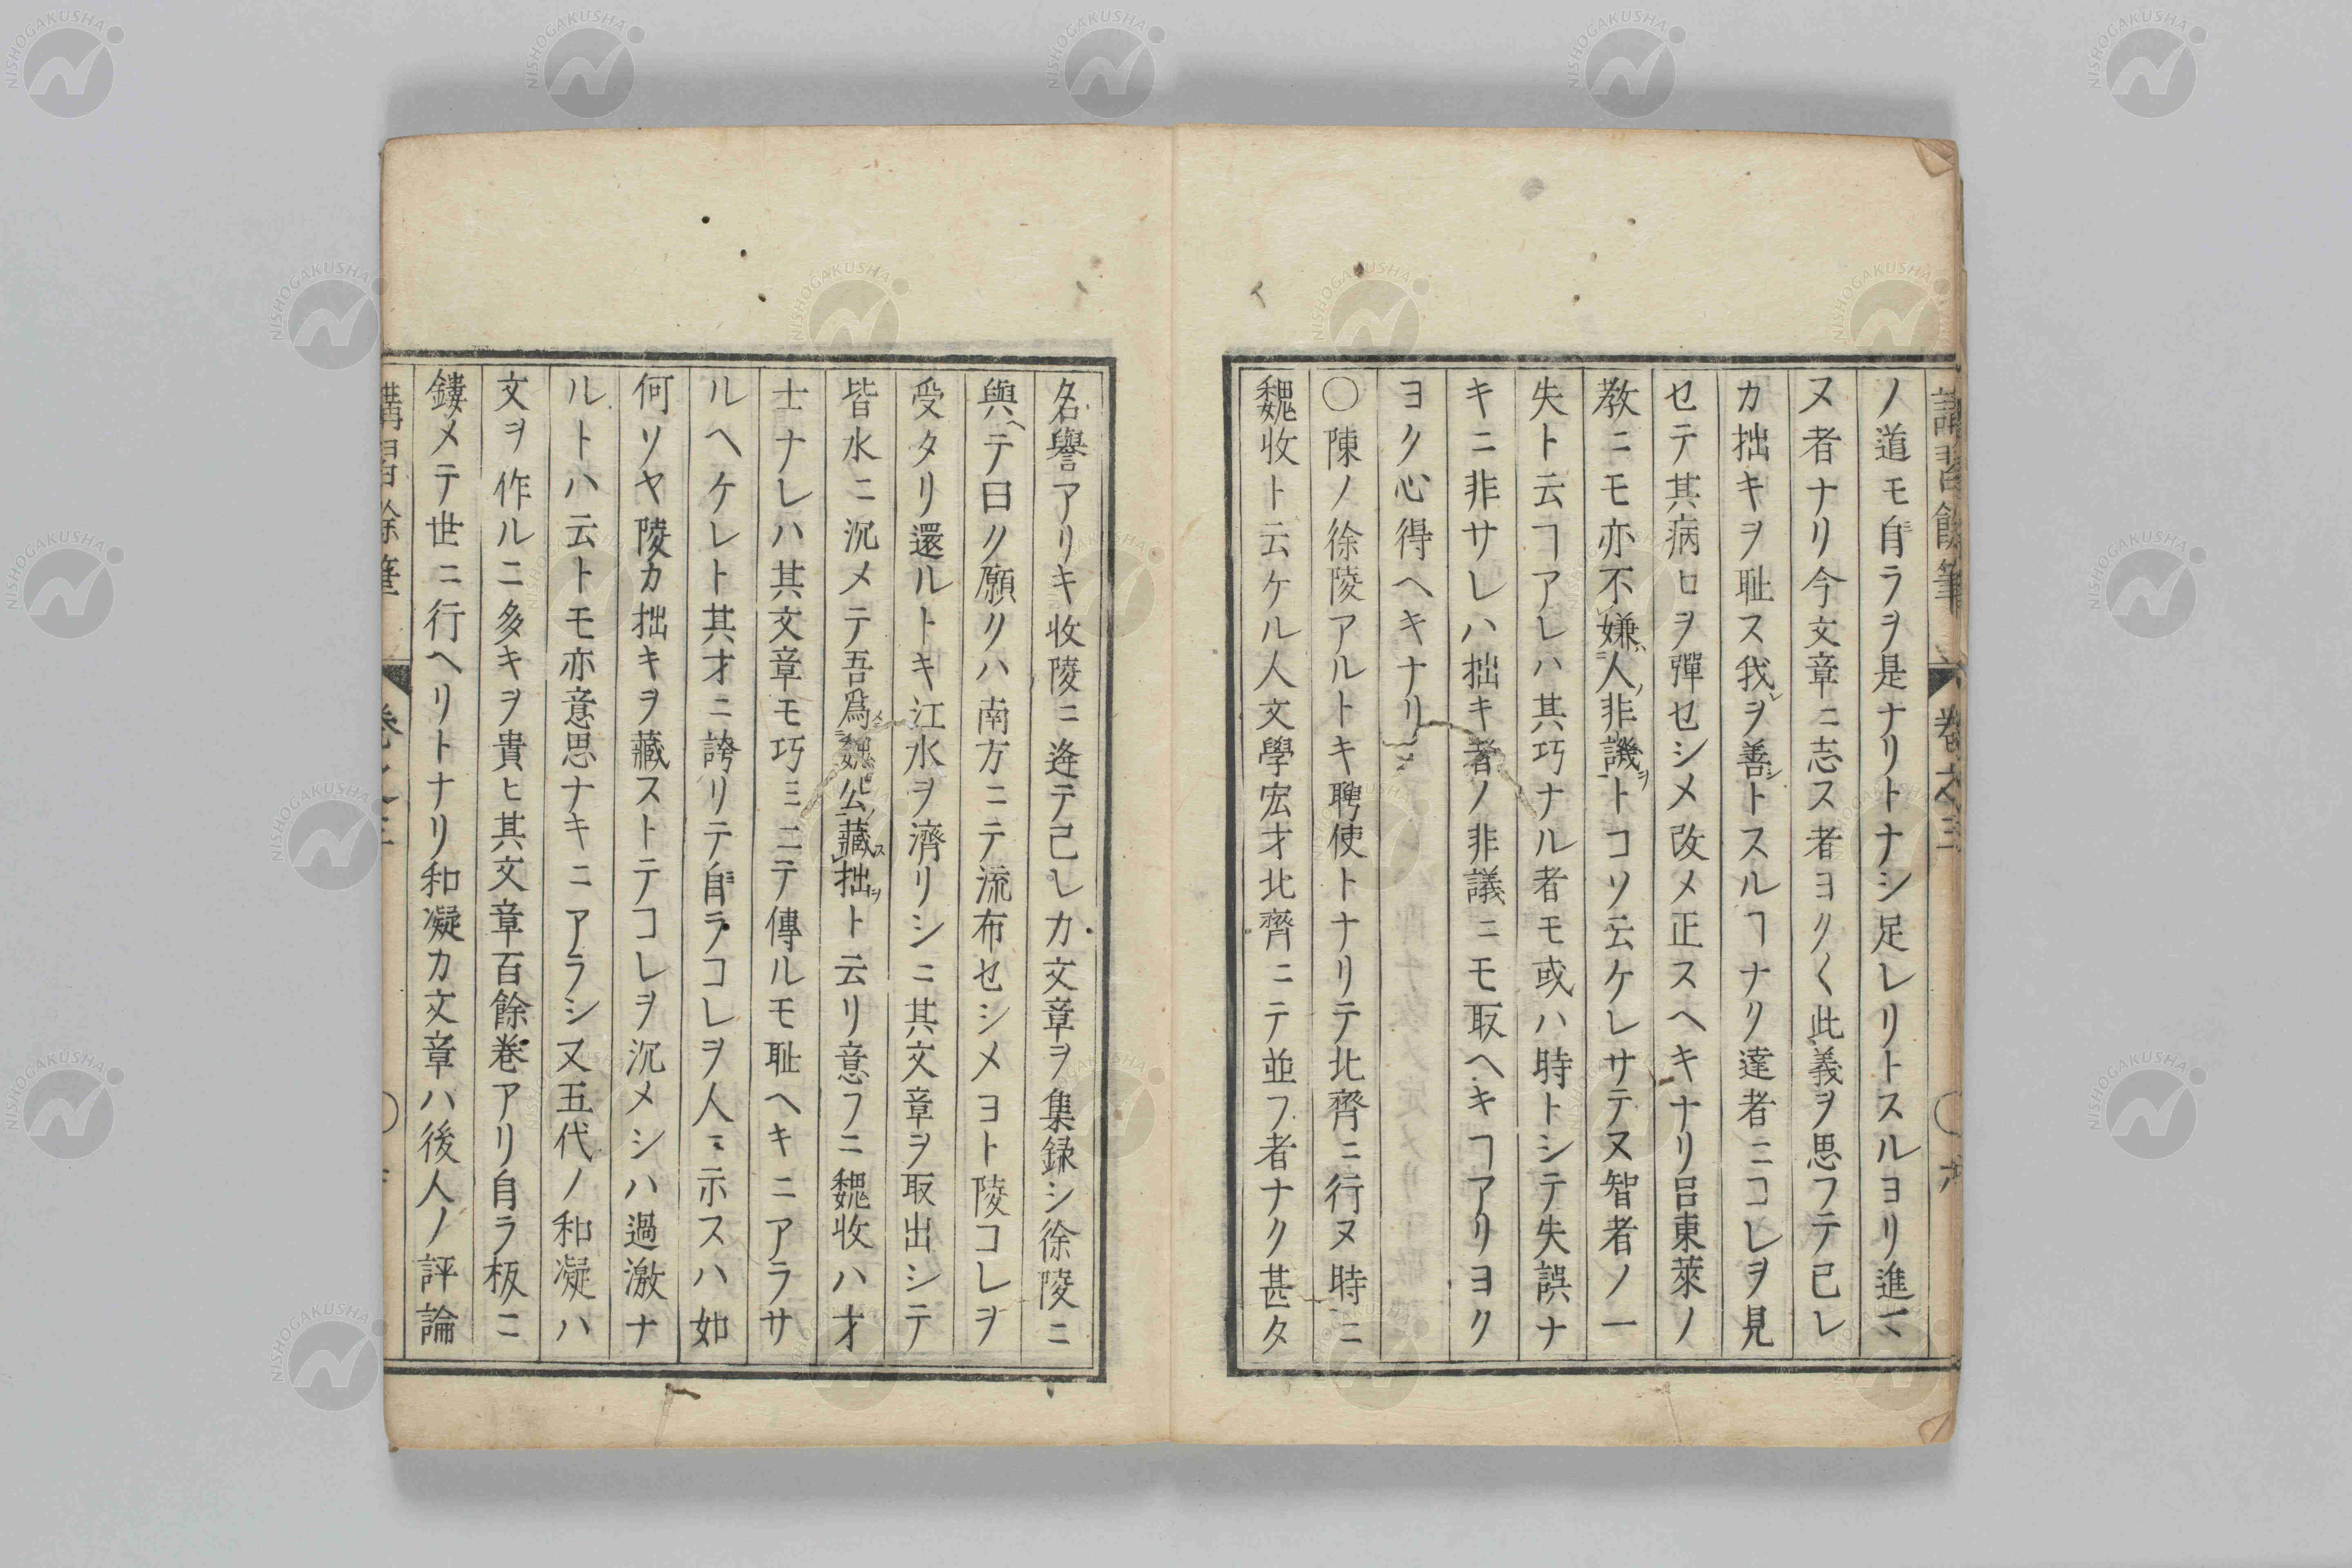 講習餘筆 卷之三 〇六
ノ道モ自ラヲ是ナリトナシ足レリトスルヨリ進マ
ヌ者ナリ今文章ニ志ス者ヨク〱此義ヲ思フテ己レ
カ拙キヲ耻ス我レヲ善シトスルヿナク達者ニコレヲ見
セテ其病ヒヲ彈セシメ改メ正スヘキナリ呂東萊ノ
教ニモ亦不嫌人ノ非譏ヲトコソ云ケレサテ又智者ノ一
失ト云ヿアレハ其巧ナル者モ或ハ時トシテ失誤ナ
キニ非サレハ拙キ者ノ非議ニモ取ヘキヿアリヨク
ヨク心得ヘキナリ
〇陳ノ徐陵アルトキ聘使トナリテ北齊ニ行ヌ時ニ
魏收ト云ケル人文學宏才北齊ニテ並フ者ナク甚タ
名譽アリキ收陵ニ逄テ己レカ文章ヲ集録シ徐陵ニ
與ヘテ曰ク願クハ南方ニテ流布セシメヨト陵コレヲ
受タリ還ルトキ江水ヲ濟リシニ其文章ヲ取出シテ
皆水ニ沉メテ吾爲魏公藏拙ト云リ意フニ魏收ハ才
士ナレハ其文章モ巧ミニテ傳ルモ耻ヘキニアラサ
ルヘケレト其才ニ誇リテ自ラコレヲ人ニ示スハ如
何ソヤ陵カ拙キヲ藏ストテコレヲ沉メシハ過激ナ
ルトハ云トモ亦意思ナキニアラシ又五代ノ和凝ハ
文ヲ作ルニ多キヲ貴ヒ其文章百餘卷アリ自ラ板ニ
鏤メテ世ニ行ヘリトナリ和凝カ文章ハ後人ノ評論
講習餘筆 卷之三